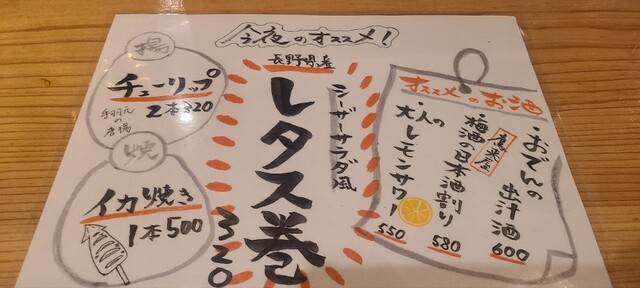 今夜のオススメ!
揚
チューリップ
2本320
手羽元
の
唐揚
焼
イカ焼き
1本500
長野県産
シーザーサラダ風
レタス巻
320
オススメのお酒
・おでんの
出汁酒
600
梅酒の日本酒割り
580
・大人の
レモンサワー
550